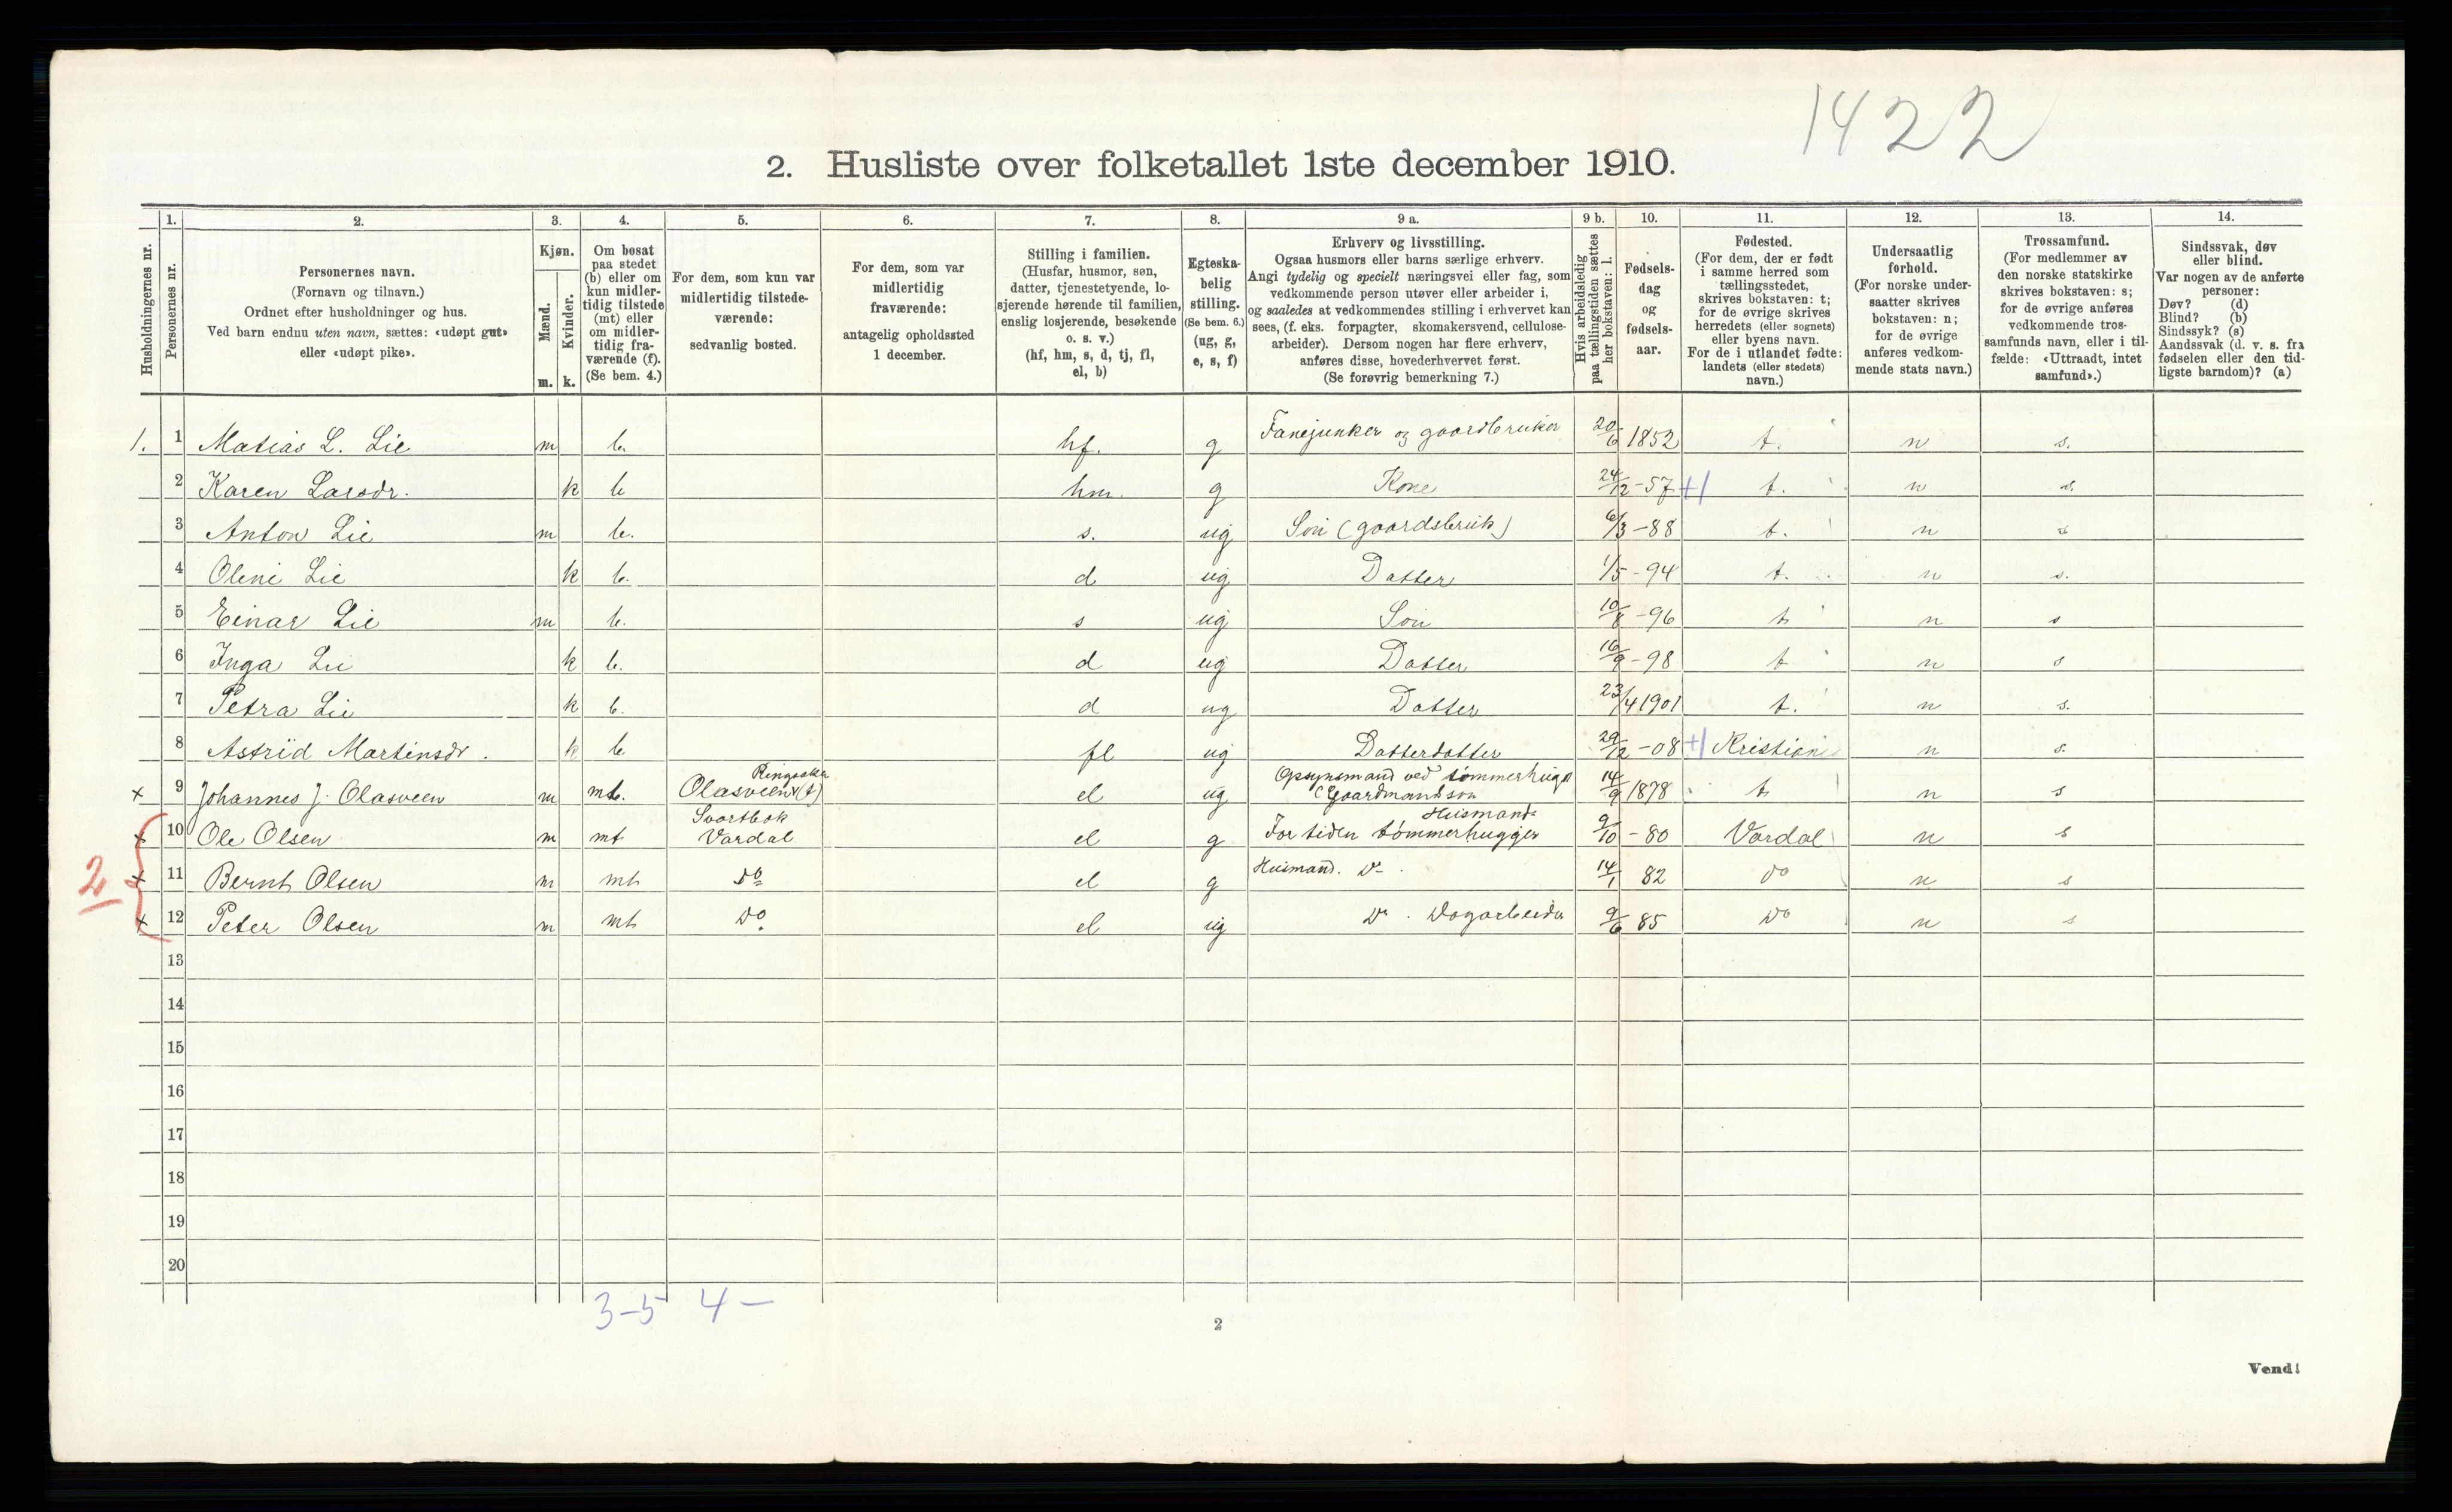 1422
2. Husliste over folketallet 1ste december 1910.
Husholdningernes nr.
1. Personernes nr.
2. Personernes navn. (Fornavn og tilnavn.) Ordnet efter husholdninger og hus. Ved barn endnu uten navn, sættes: «udøpt gut» eller «udøpt pike».
3. Kjøn. Mænd. m. Kvinder. k.
4. Om bosat paa stedet (b) eller om kun midlertidig tilstede (mt) eller om midlertidig fraværende (f). (Se bem. 4.)
5. For dem, som kun var midlertidig tilstedeværende: sedvanlig bosted.
6. For dem, som var midlertidig fraværende: antagelig opholdssted 1 december.
7. Stilling i familien. (Husfar, husmor, søn, datter, tjenestetyende, losjerende hørende til familien, enslig losjerende, besøkende o. s. v.) (hf, hm, s, d, tj, fl, el, b)
8. Egteskabelig stilling. (Se bem. 6.) (ug, g, e, s, f)
9 a. Erhverv og livsstilling. Ogsaa husmors eller barns særlige erhverv. Angi tydelig og specielt næringsvei eller fag, som vedkommende person utøver eller arbeider i, og saaledes at vedkommendes stilling i erhvervet kan sees, (f. eks. forpagter, skomakersvend, cellulosearbeider). Dersom nogen har flere erhverv, anføres disse, hovederhvervet først. (Se forøvrig bemerkning 7.)
9 b. Hvis arbeidsledig paa tællingstiden sættes her bokstaven: l.
10. Fødselsdag og fødselsaar.
11. Fødested. (For dem, der er født i samme herred som tællingsstedet, skrives bokstaven: t; for de øvrige skrives herredets (eller sognets) eller byens navn. For de i utlandet fødte: landets (eller stedets) navn.)
12. Undersaatlig forhold. (For norske undersaatter skrives bokstaven: n; for de øvrige anføres vedkommende stats navn.)
13. Trossamfund. (For medlemmer av den norske statskirke skrives bokstaven: s; for de øvrige anføres vedkommende trossamfunds navn, eller i tilfælde: «Uttraadt, intet samfund».)
14. Sindssvak, døv eller blind. Var nogen av de anførte personer: Døv? (d) Blind? (b) Sindssyk? (s) Aandssvak (d. v. s. fra fødselen eller den tidligste barndom)? (a)
1. 1 Matias L. Lie m b. hf. g Fanejunker og gaardbruker 20/6 1852 t. n s.
2 Karen Larsdr. k b hm. g Kone 24/12 -57 +1 t. n s.
3 Anton Lie m b. s. ug Søn (gaardsbruk) 6/3 -88 t. n s
4 Oline Lie k b. d ug Datter 1/5 -94 t. n s.
5 Einar Lie m b. s ug Søn 10/8 -96 t n s
6 Inga Lie k b. d ug Datter 16/9 -98 t n s
7 Petra Lie k b. d ug Datter 23/4 1901 t. n s.
8 Astrid Martinsdr. k b fl ug Datterdatter 29/12 -08 +1 Kristiani n s.
x 9 Johannes J. Olasveen m mt. Ringsaker Olasveen (t) el ug Opsynsmand ved tømmerhugs (Gaardmandsøn 14/9 1878 t n s
x 10 Ole Olsen m mt Svartbek Vardal el g Husmand For tiden tømmerhugger 9/10 -80 Vardal n s
2 x 11 Bernt Olsen m mt do el g Husmand. Do 14/1 82 do n s
x 12 Peter Olsen m mt Do el ug Do. Dagarbeider 9/6 85 Do n s
13
14
15
16
17
18
19
20
3-5 4 -
2
Vend!